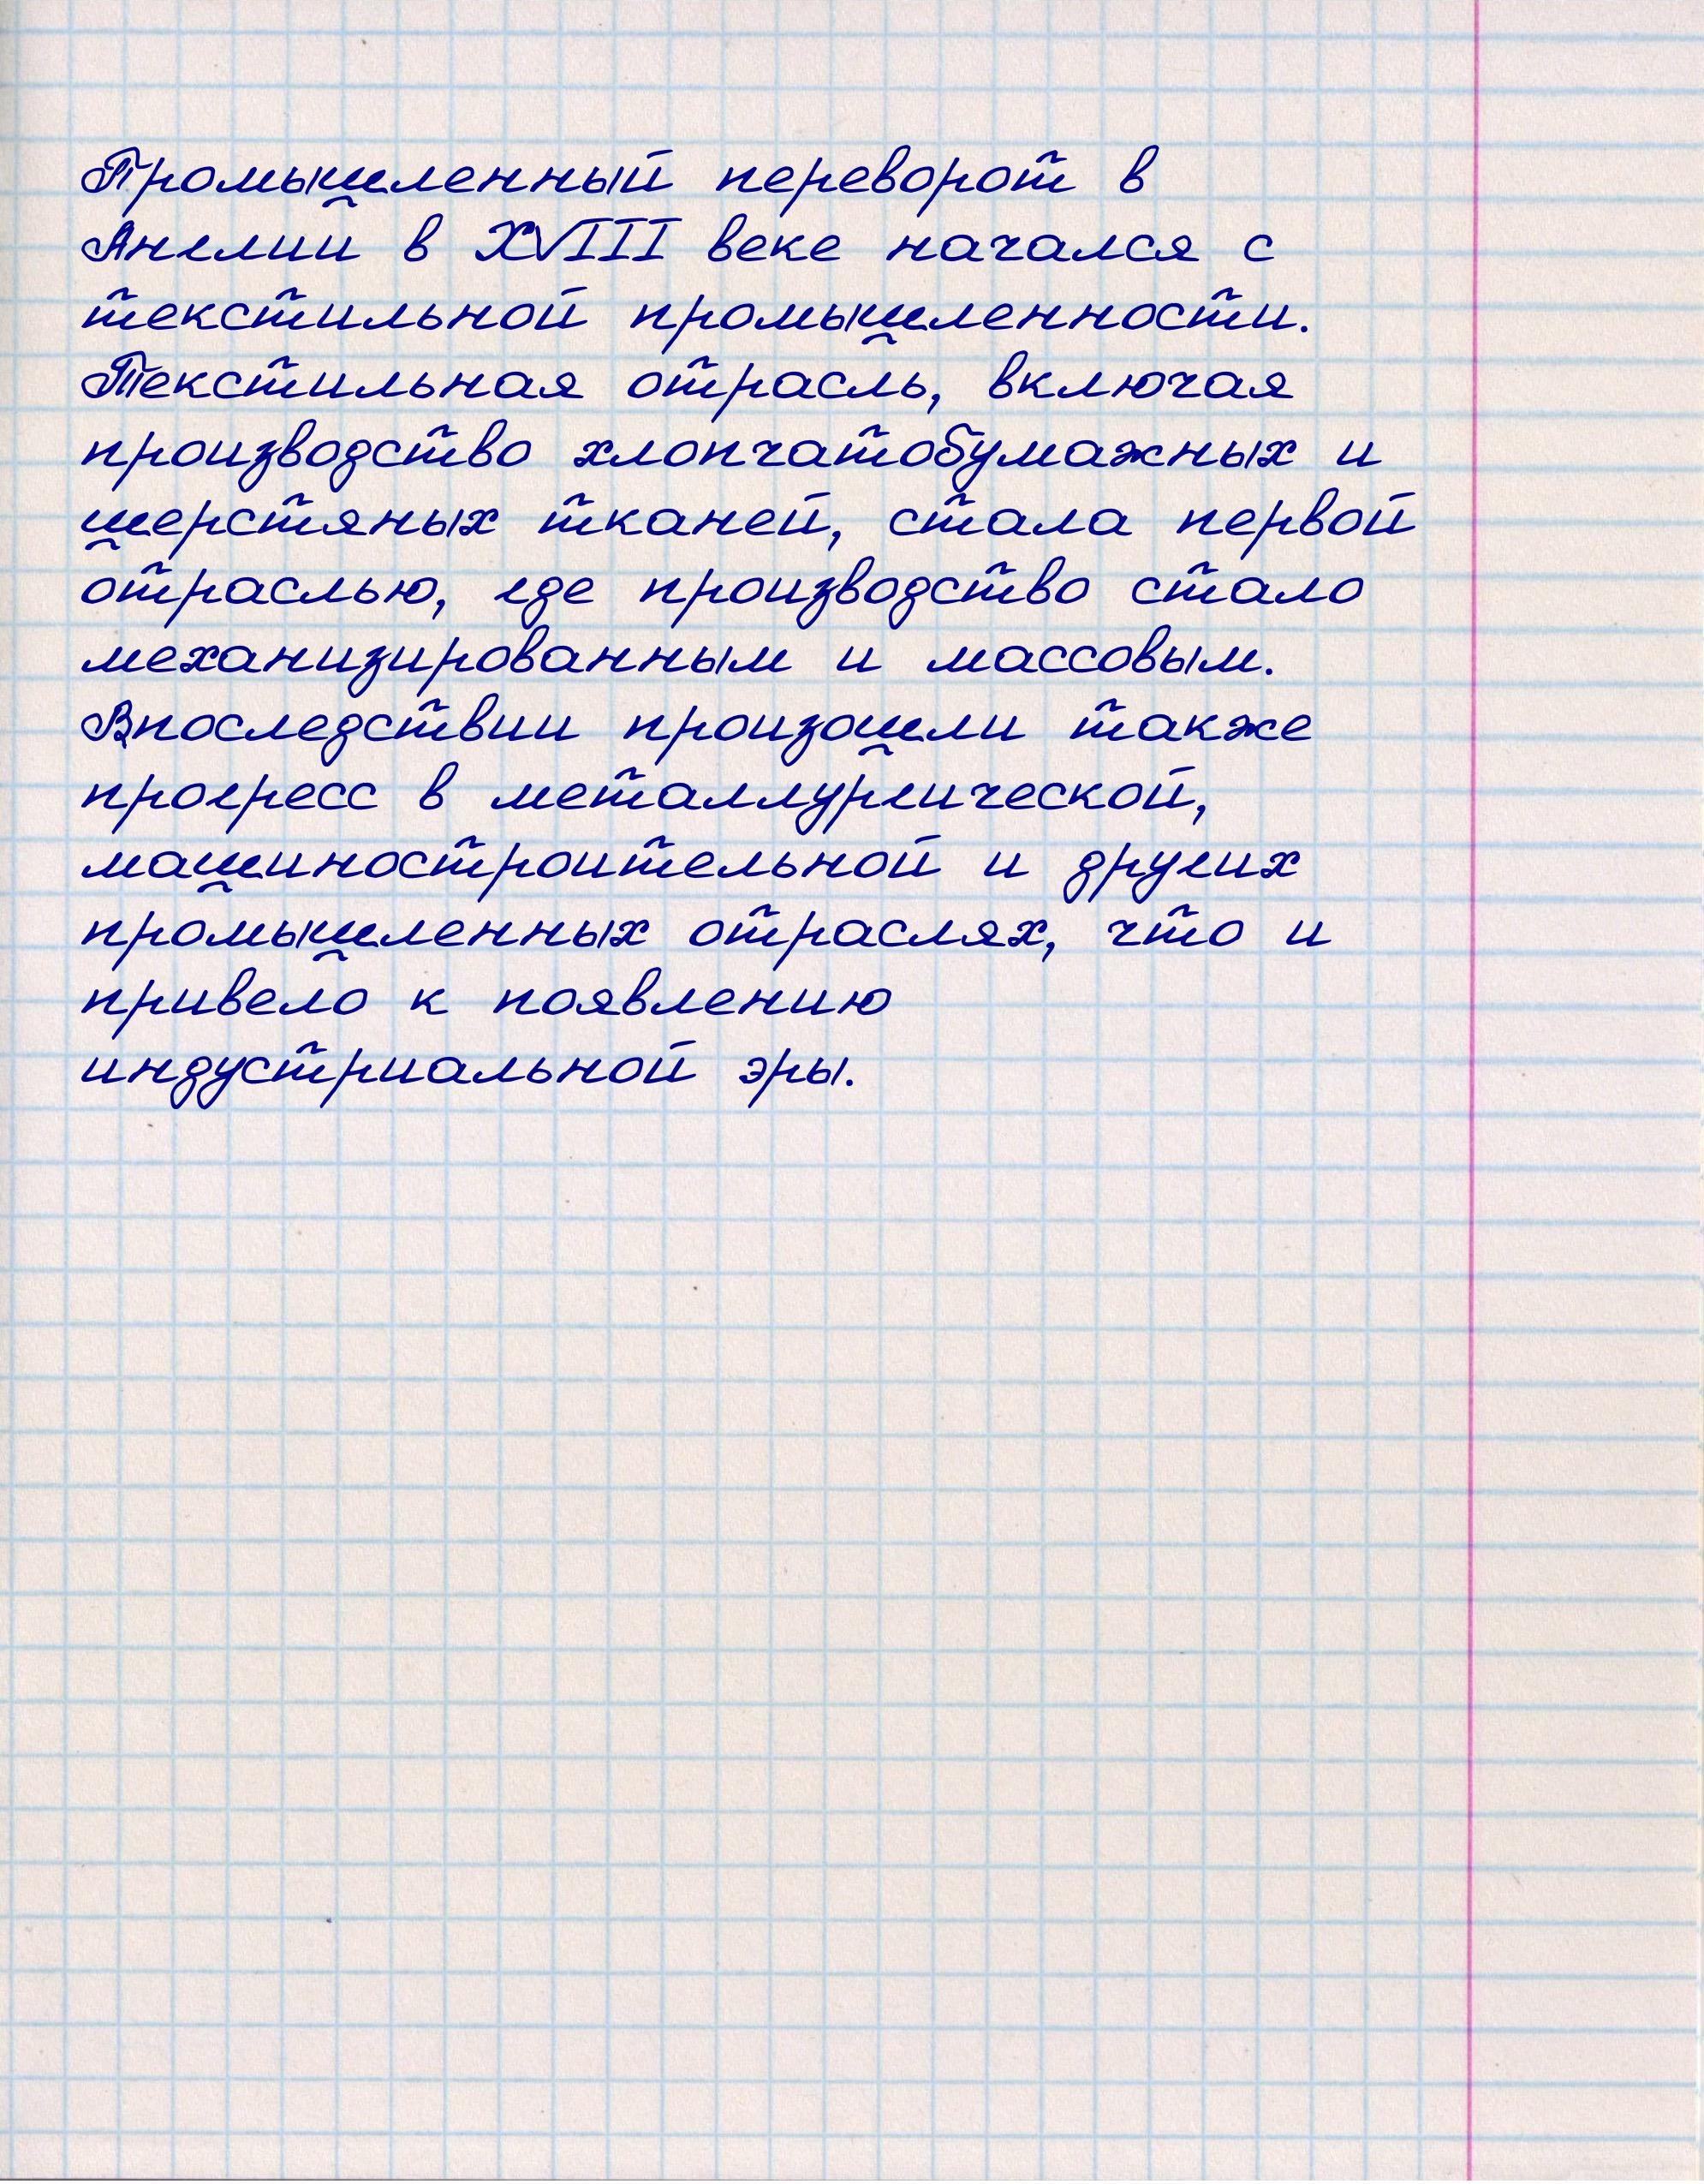 Промышленный переворот в
Англии в XVIII веке начался с
текстильной промышленности.
Текстильная отрасль, включая
производство хлопчатобумажных и
шерстяных тканей, стала первой
отраслью, где производство стало
механизированным и массовым.
Впоследствии произошли также
прогресс в металлургической,
машиностроительной и других
промышленных отраслях, что и
привело к появлению
индустриальной эры.